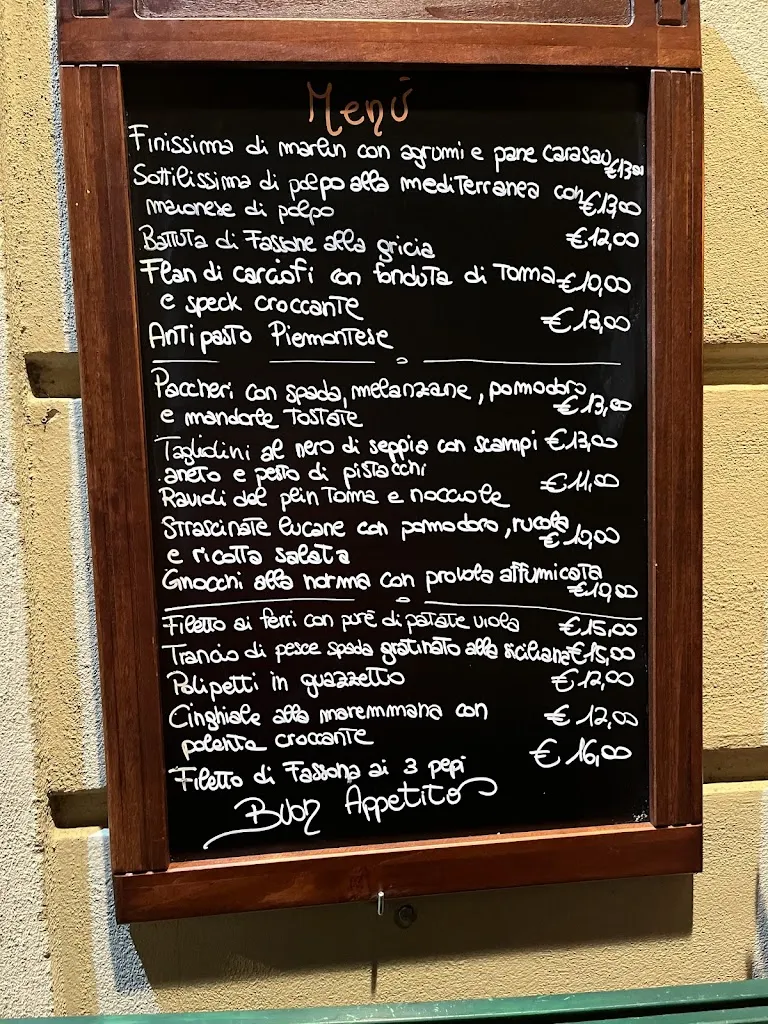 Menù
Finissima di marlin con agrumi e pane carasau €13,00
Sottilissima di polpo alla mediterranea con €13,00
maionese di polpo
Battuta di Fassone alla gricia €12,00
Flan di carciofi con fonduta di Toma €10,00
e speck croccante
Antipasto Piemontese €13,00
Paccheri con spada, melanzane, pomodoro €13,00
e mandorle tostate
Tagliolini al nero di seppia con scampi €13,00
aneto e pesto di pistacchi
Ravioli del plin Toma e nocciole €11,00
Strascinate lucane con pomodoro, rucola €10,00
e ricotta salata
Gnocchi alla norma con provola affumicata €10,00
Filetto ai ferri con purè di patate viola €15,00
Trancio di pesce spada gratinato alla siciliana €15,00
Polipetti in guazzetto €12,00
Cinghiale alla maremmana con €12,00
polenta croccante
Filetto di Fassona ai 3 pepi €16,00
Buon Appetito